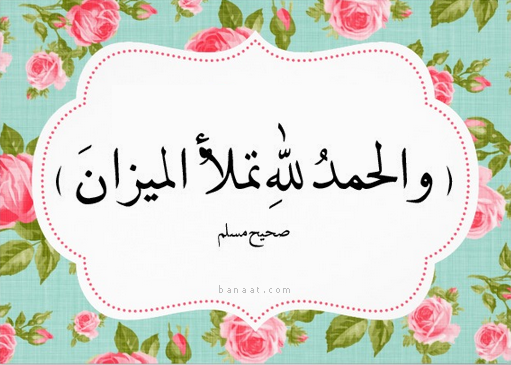 ( والحمدُ للهِ تملأُ الميزانَ )
صحيح مسلم
banaat.com